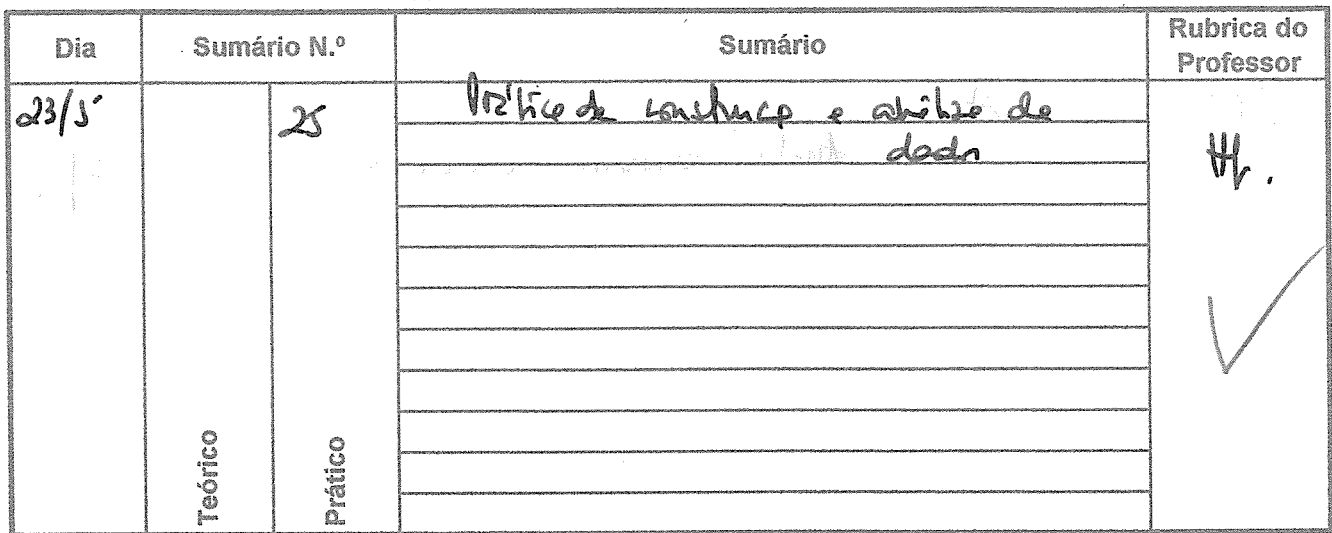 Dia Sumário N.º Sumário Rubrica do Professor
23/5 25 Prática de construção e análise de
dados
Teórico Prático